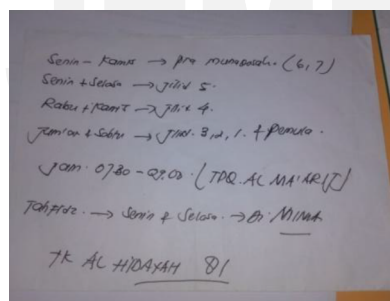 Senin - Kamis → pra munaqosah. (6,7)
Senin + Selasa → Jilid 5.
Rabu + Kamis → Jilid 4.
Jumian + Sabtu → Jilid. 3,2,1. + Pemula.
Jam. 07.30 - 09.00. (TPQ. AL MA'ARIJ)
Tahfidz. → Senin & Selasa. → Di MINHA
TK AL HIDAYAH 01